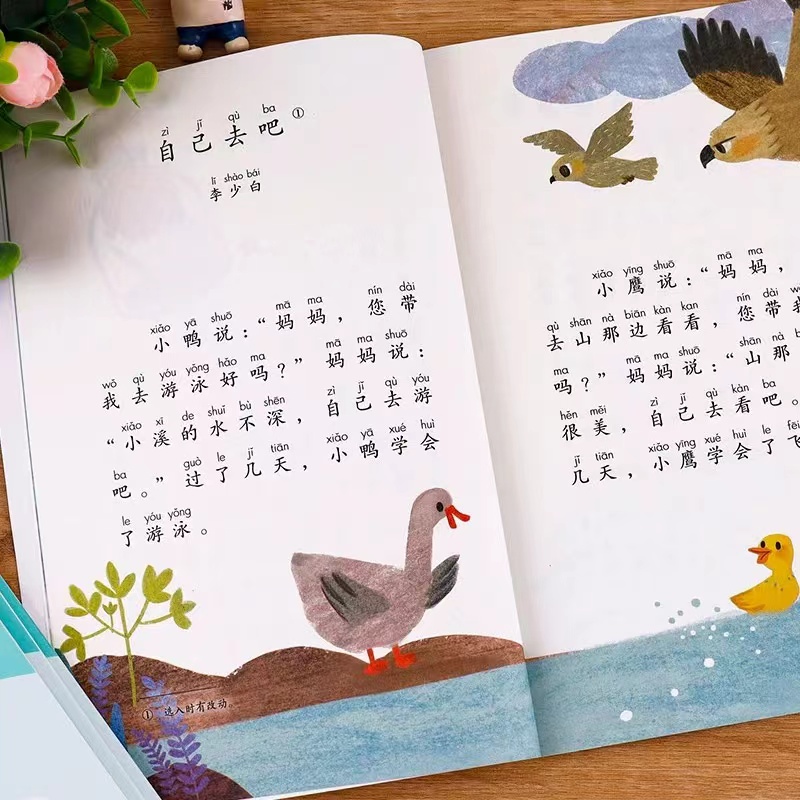 zì jǐ qù ba
自己去吧①
lǐ shào bái
李少白
xiǎo yā shuō mā ma nín dài
小鸭说：“妈妈，您带
wǒ qù yóu yǒng hǎo ma mā ma shuō
我去游泳好吗？”妈妈说：
xiǎo xī de shuǐ bù shēn zì jǐ qù yóu
“小溪的水不深，自己去游
ba guò le jǐ tiān xiǎo yā xué huì
吧。”过了几天，小鸭学会
le yóu yǒng
了游泳。
① 选入时有改动。
xiǎo yīng shuō mā ma
小鹰说：“妈妈，
qù shān nà biān kàn kan nín dài wǒ
去山那边看看，您带我
ma mā ma shuō shān nà
吗？”妈妈说：“山那
hěn měi zì jǐ qù kàn ba
很美，自己去看吧。
jǐ tiān xiǎo yīng xué huì le fēi
几天，小鹰学会了飞